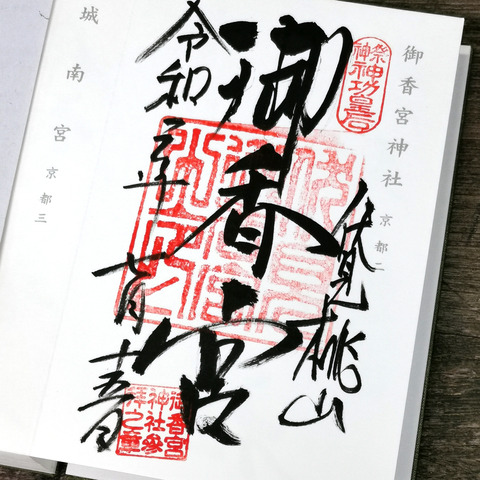 御香宮神社 京都二
祭神
神功皇后
伏見桃山
御香宮
令和
年
七月十五日
御香宮
神社参
拝之章
城南宮 京都三